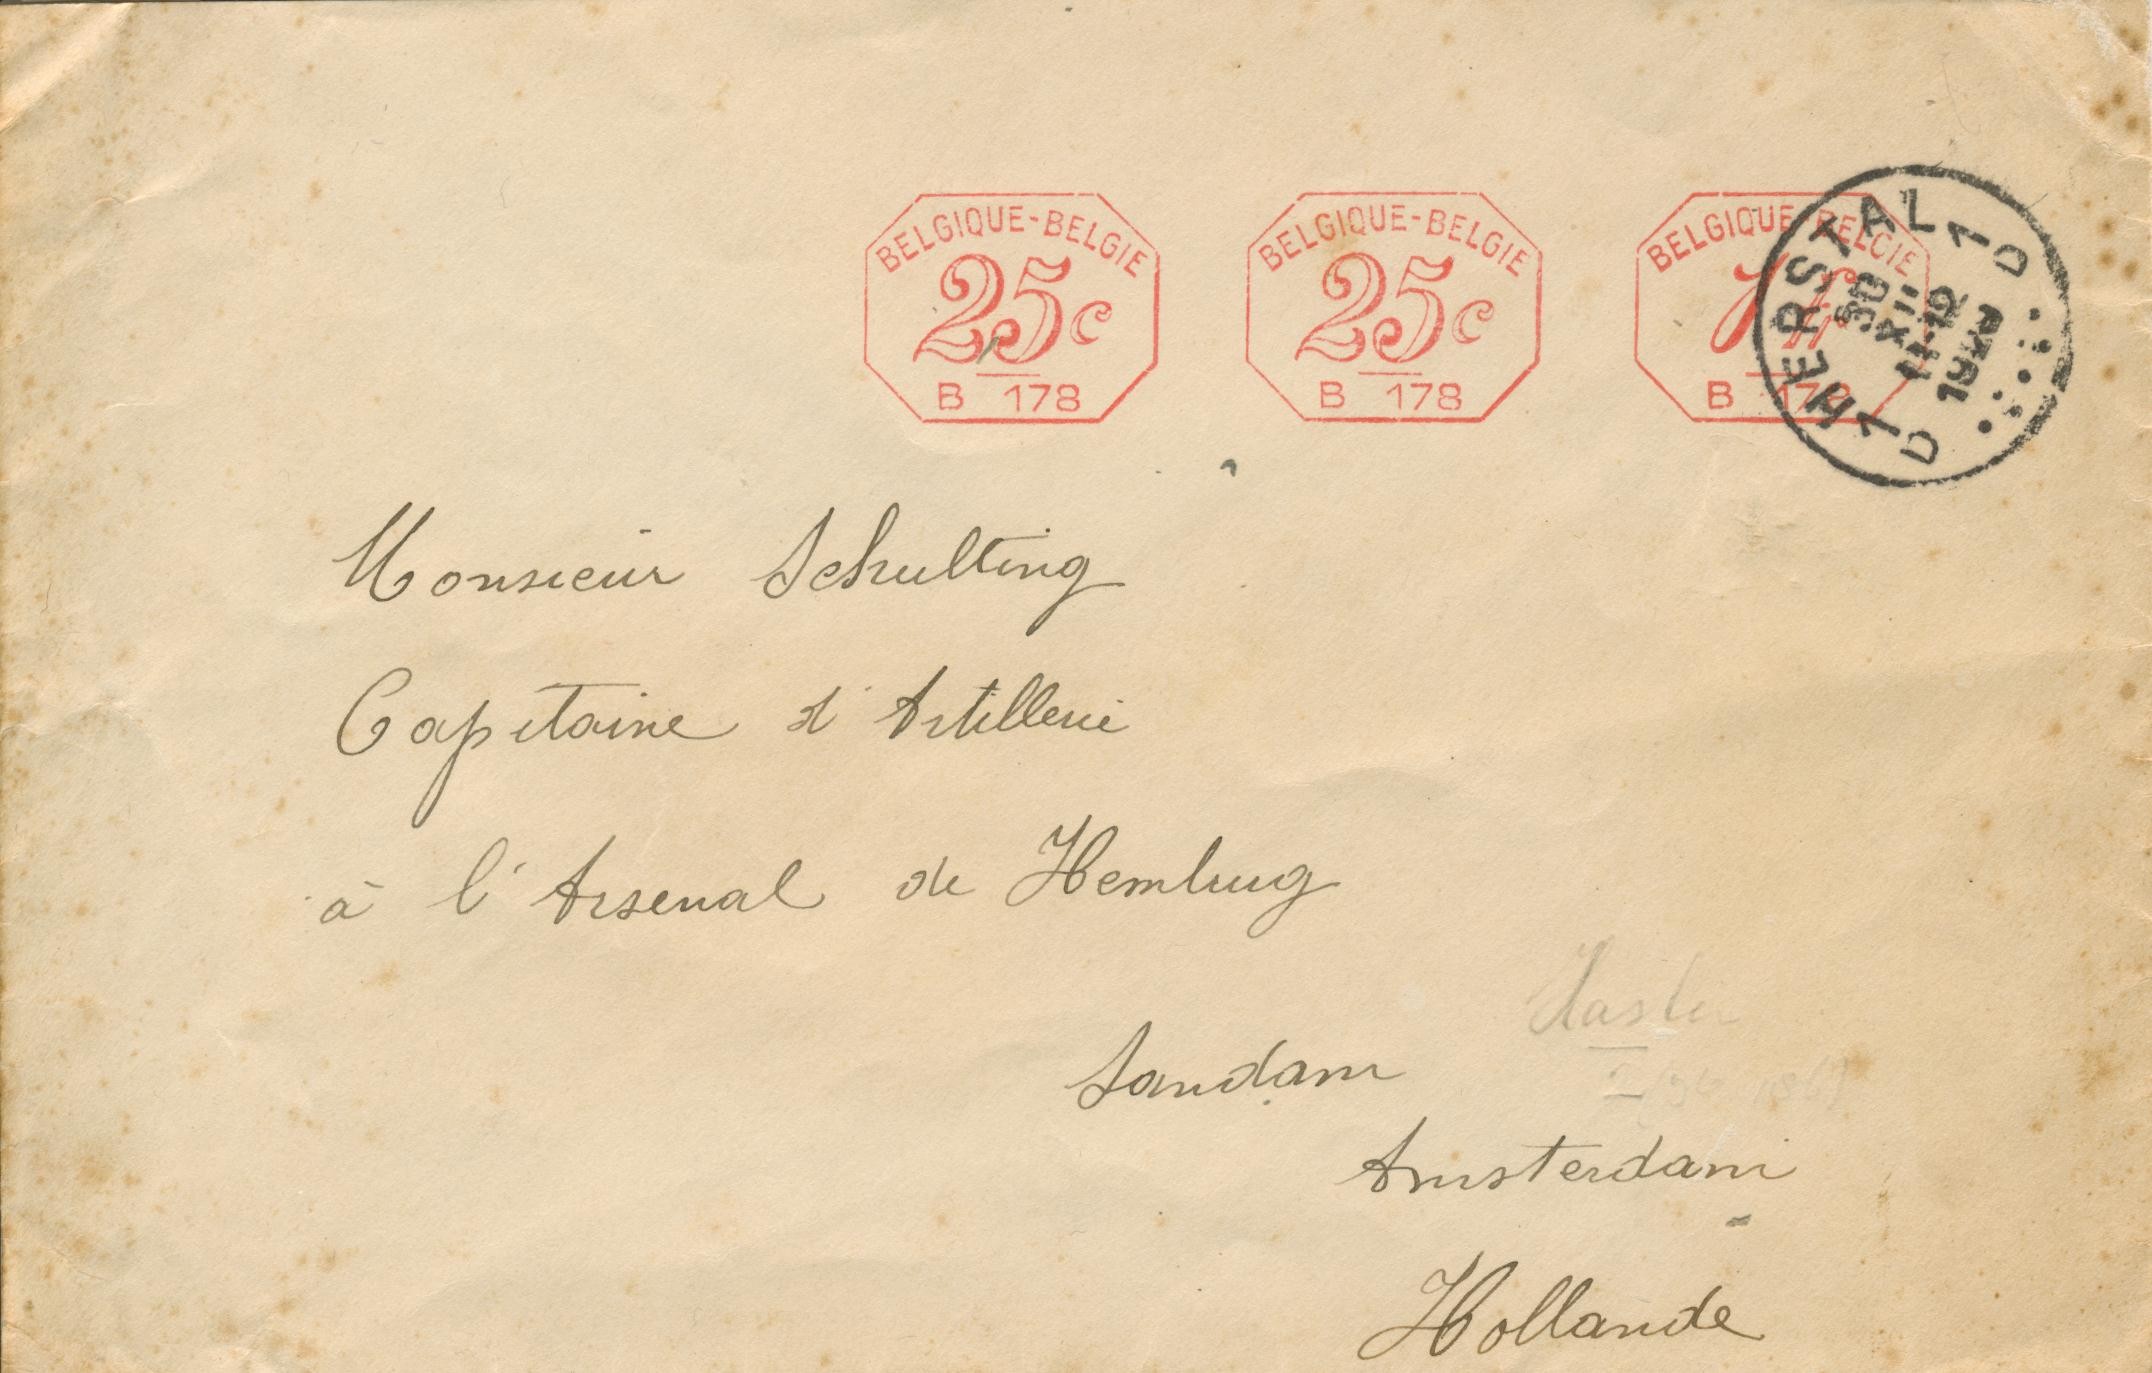 BELGIQUE-BELGIE
25c
B 178
BELGIQUE-BELGIE
25c
B 178
BELGIQUE-BELGIE
1fr
B 178
HERSTAL
1D 1D
30
XII
11-12
Monsieur Schulting
Capitaine d'Artillerie
à l'Arsenal de Hembrug
Sandam
Amsterdam
Hollande